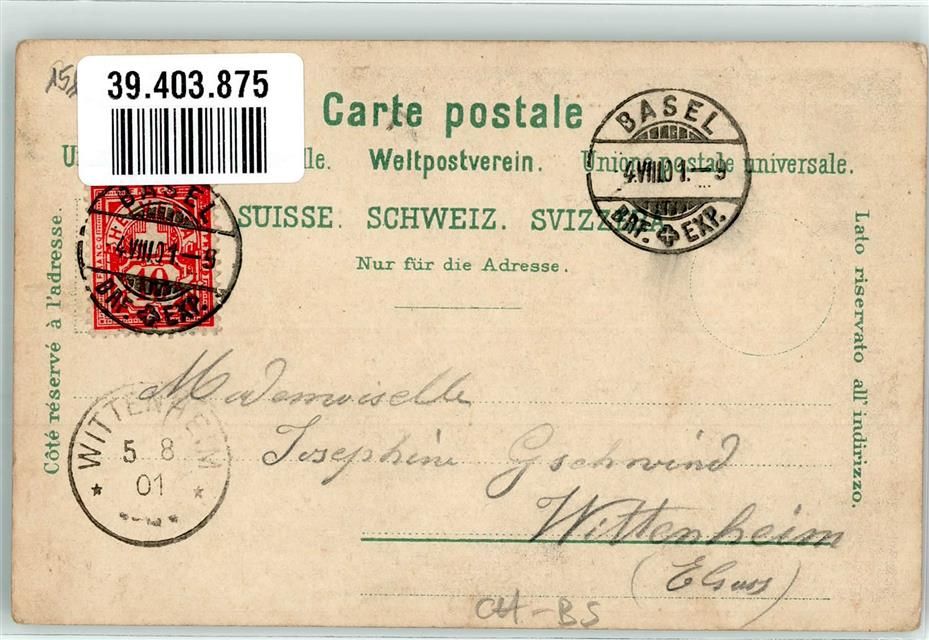 39.403.875
Carte postale
Weltpostverein. Unione postale universale.
SUISSE. SCHWEIZ. SVIZZERA
Nur für die Adresse.
Côté réservé à l'adresse.
Lato riservato all' indirizzo.
BASEL
4.VIII.01.-9
BRF. EXP.
BASEL
4.VIII.01-9
BRF. EXP.
10
FRANCO
WITTENHEIM
5 8
01
Mademoiselle
Josephine Gschwind
Wittenheim
(Elsass)
CH-BS